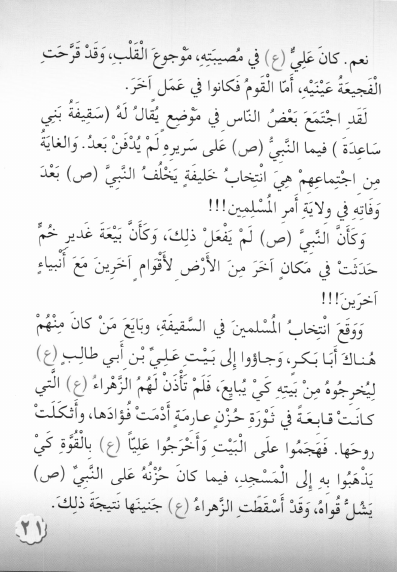 نعم. كانَ عَلِيٌّ (ع) في مُصيبَتِهِ، مَوْجوعَ الْقَلْبِ، وَقَدْ قَرَّحَتِ
الْفَجيعَةُ عَيْنَيْهِ، أَمّا الْقَوْمُ فَكانُوا في عَمَلٍ آخَرَ.
لَقَدِ اجْتَمَعَ بَعْضُ النّاسِ في مَوْضِعٍ يُقالُ لَهُ (سَقِيفَةُ بَنِي
سَاعِدَةَ) فيما النَّبِيُّ (ص) عَلى سَريرِهِ لَمْ يُدْفَنْ بَعدُ. وَالغايَةُ
مِنِ اجْتِماعِهِمْ هِيَ انْتِخابُ خَليفَةٍ يَخْلُفُ النَّبِيَّ (ص) بَعْدَ
وَفَاتِهِ في وِلايَةِ أَمرِ المُسْلِمِين!!!
وَكَأَنَّ النَّبِيَّ (ص) لَمْ يَفْعَلْ ذلِكَ، وَكَأَنَّ بَيْعَةَ غَديرِ خُمٍّ
حَدَثَتْ في مَكانٍ آخَرَ مِنَ الأَرْضِ لِأَقْوامٍ آخَرينَ مَعَ أَنْبياءٍ
آخَرينَ!!!
وَوَقَعَ انْتِخابُ المُسْلمينَ في السَّقيفَةِ، وبَايَعَ مَنْ كانَ مِنْهُمْ
هُنـاكَ أَبـا بَكـرٍ، وَجـاؤوا إِلى بَيْـتِ عَلـيِّ بْن أَبـي طالِبٍ (ع)
لِيُخرِجُوهُ مِنْ بَيتِهِ كَيْ يُبايِعَ، فَلَمْ تَأْذَنْ لَهُمُ الزَّهْراءُ (ع) الَّتي
كانَتْ قابِعَةً في ثَوْرَةِ حُزْنٍ عارِمَةٍ أَدْمَتْ فُؤادَها، وأَثْكَلَتْ
روحَها. فَهَجَمُوا علَى الْبَيْتِ وَأَخْرَجُوا عَلِيّاً (ع) بِالْقُوَّةِ كَيْ
يَذْهَبُوا بِهِ إِلى الْمَسْجِدِ، فيما كانَ حُزْنُهُ عَلى النَّبيِّ (ص)
يَشُلُّ قُواهُ، وَقَدْ أَسْقَطَتِ الزَّهراءُ (ع) جَنينَها نَتيجَةَ ذلِكَ.
٢١